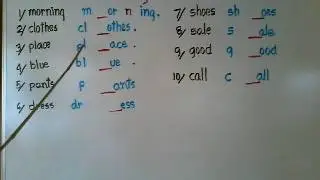 1/ morning m _or n ing.
2/ clothes cl _othes.
3/ place pl _ace.
4/ blue bl _ue.
5/ pants p _ants
6/ dress dr _ess
7/ shoes sh _oes
8/ sale s _ale
9/ good g _ood
10/ call c _all